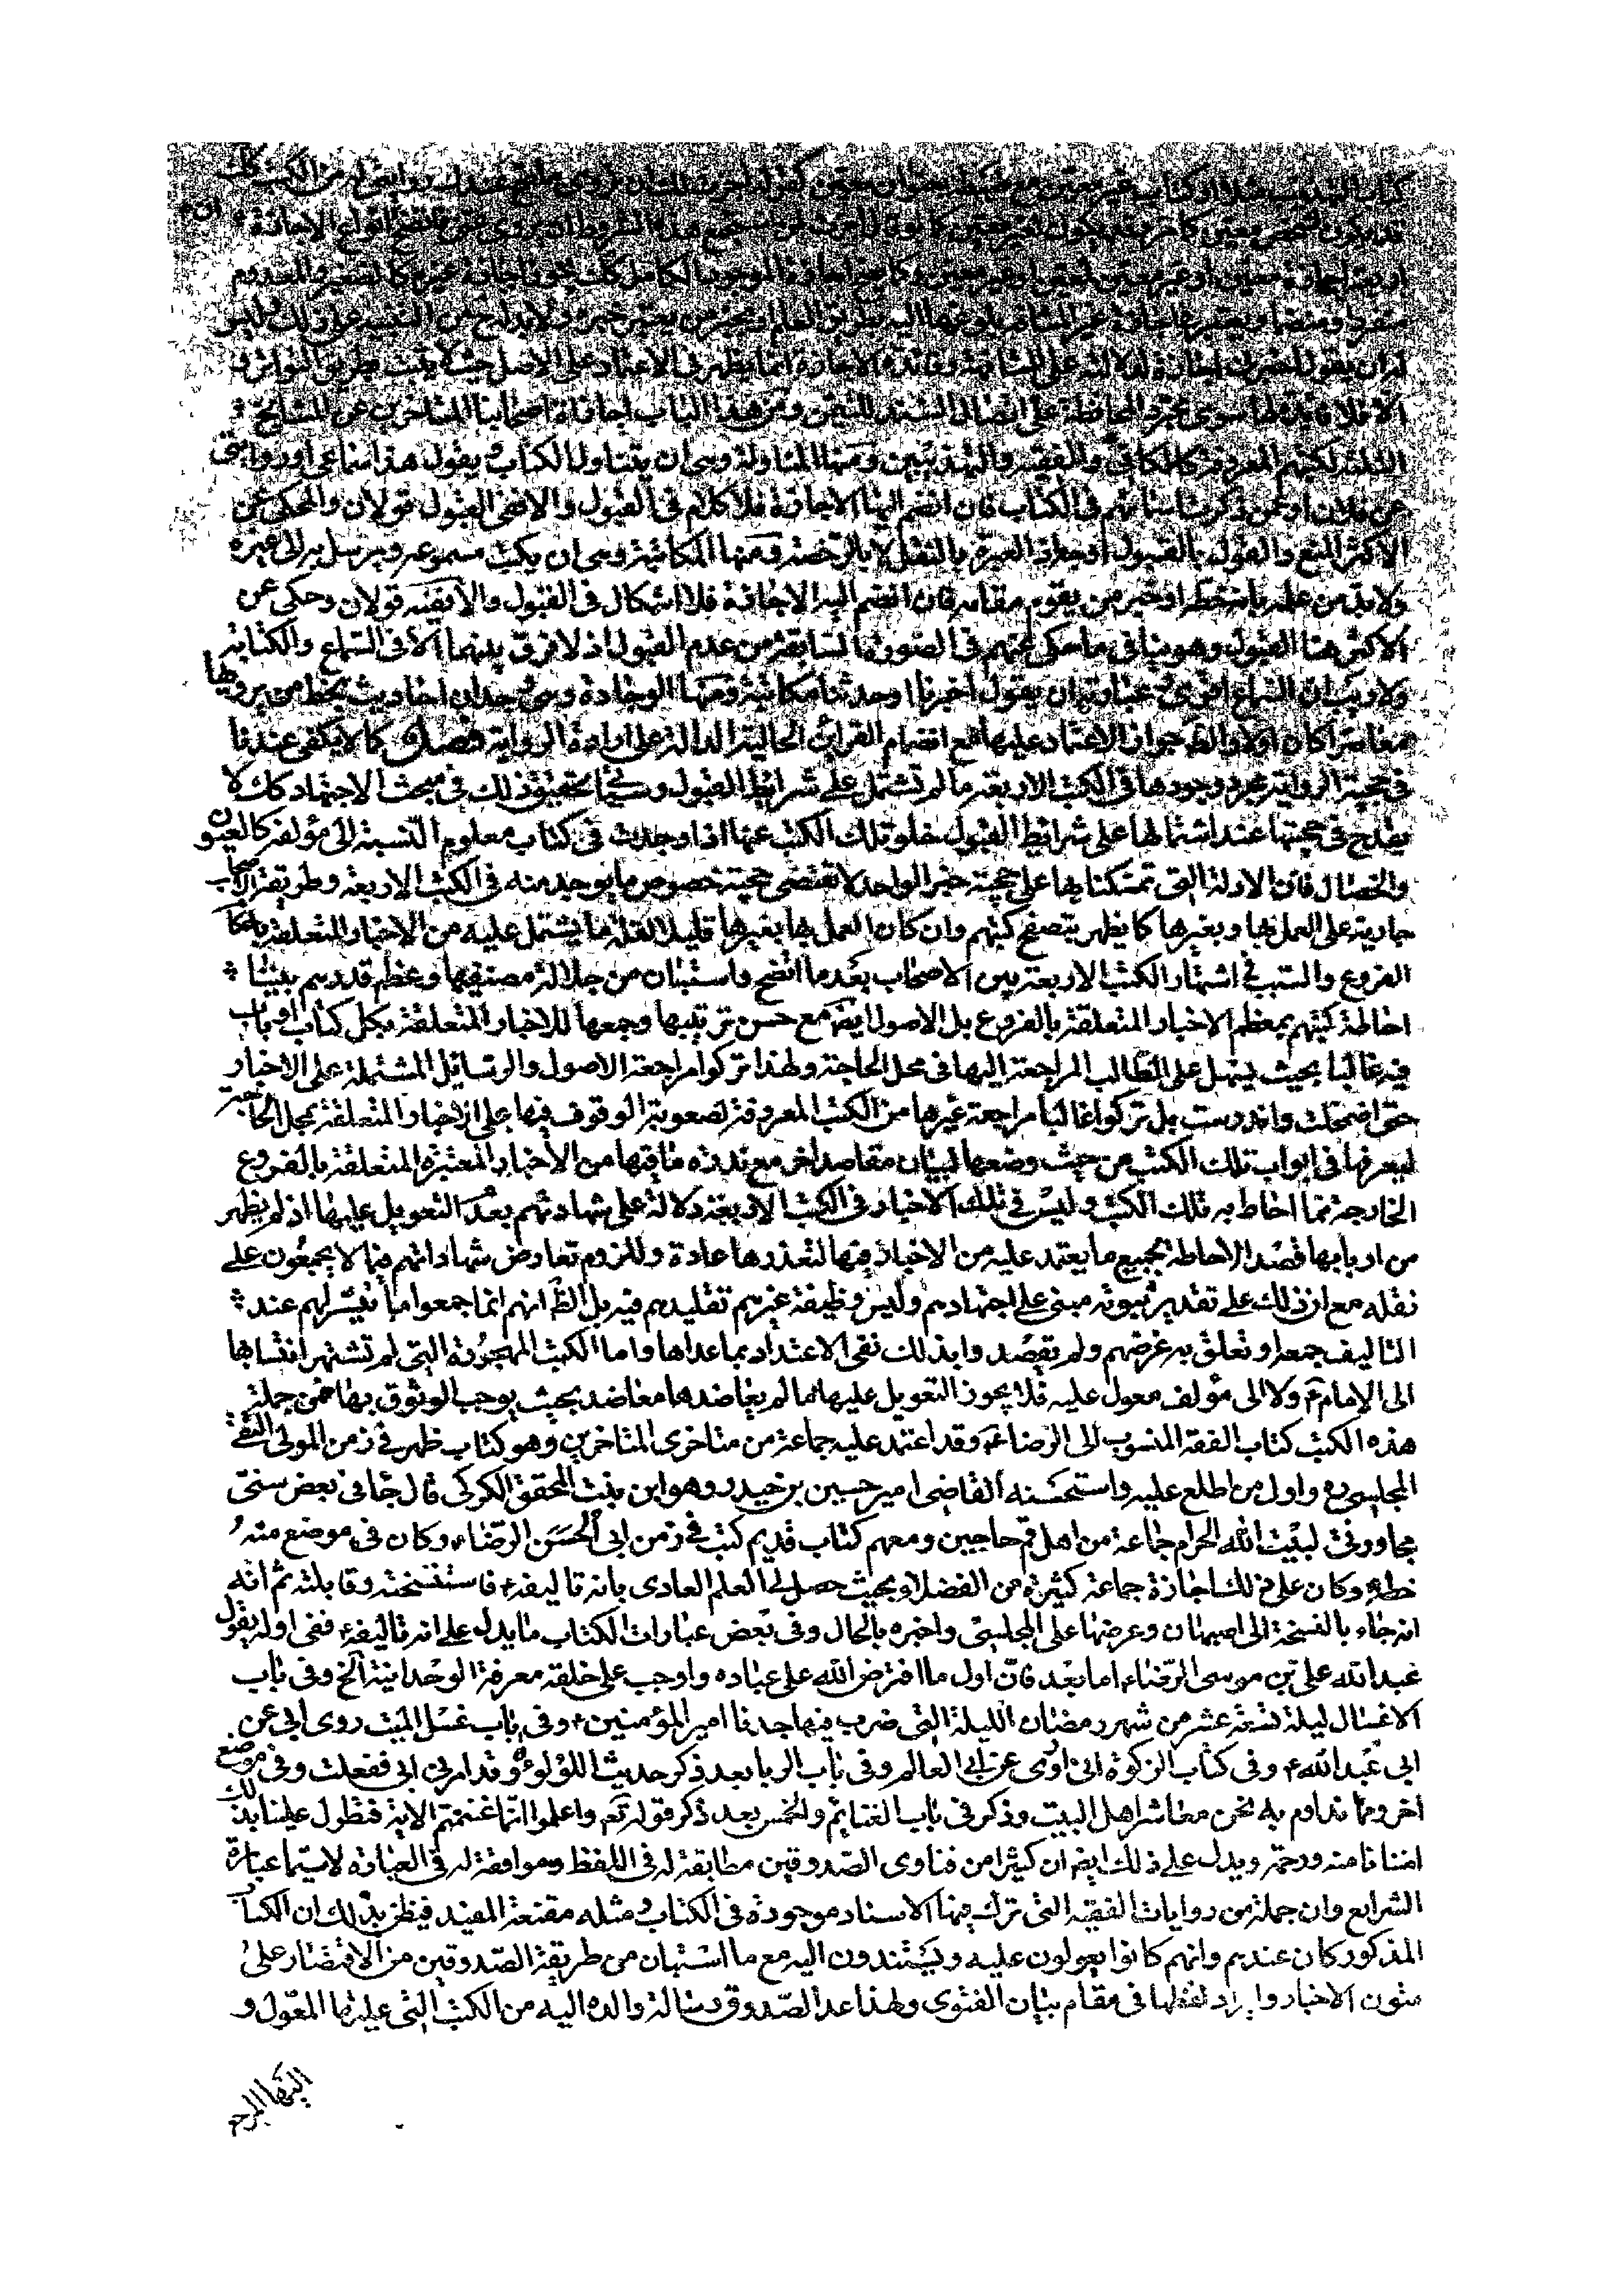 قد يكون لشخص معين كما مر وقد يكون لغير معين
الا فلا فائدة لها سوى مجرد المحافظة على اتصال السند للتيمن ومن هذا الباب اجازة اصحابنا المتاخرين عن المشايخ
الثلثة لكتبهم المعروفة كالكافي والفقيه والتهذيبين ومنها المناولة وهى ان يتناول الكتاب ويقول هذا سماعى او روايتى
عن فلان او عمن ذكرت اسنادهم فى الكتاب فان انضم اليها الاجازة فلا كلام فى القبول والا ففى القبول قولان والمحكى عن
الاكثر المنع والقول بالقبول ومنها المكاتبة وهى ان يكتب مسموعه ويرسل به الى غيره
ولا بد من علمه بانه خطه او خبر من يقوم مقامه فان انضم اليه الاجازة فلا اشكال فى القبول والا ففيه قولان وحكى عن
الاكثر هنا القبول وهو ينافى ما حكى عنهم فى الصورة السابقة من عدم القبول اذ لا فرق بينهما الا فى السماع والكتابة
ولا ريب ان السماع اقوى عبارته ان يقول اخبرنا او حدثنا مكاتبة ومنها الوجادة وهى وجدان احاديث بخط من يرويها
معاصرا كان اولا والظ جواز الاعتماد عليها مع انضمام القرائن الحالية الدالة على ارادة الرواية فصل كما لا يكفى عندنا
فى حجية الرواية مجرد وجودها فى الكتب الاربعة ما لم تشتمل على شرائط القبول وسيجئ تحقيق ذلك فى مبحث الاجتهاد كك لا
يقدح فى حجيتها عند اشتمالها على شرائط القبول خلو تلك الكتب عنها اذا وجدت فى كتاب معلوم النسبة الى مؤلفه كالعيون
والخصال فان الادلة التى تمسكنا بها على حجية خبر الواحد لا تقتضى حجية خصوص ما يوجد منه فى الكتب الاربعة وطريقة الاصحاب
جارية على العمل بها وبغيرها كما يظهر بتصفح كتبهم وان كان العمل بها بغيرها قليلا لقلة ما يشتمل عليه من الاخبار المتعلقة باحكام
الفروع والسبب فى اشتهار الكتب الاربعة بين الاصحاب بعد ما اتضح واستبان من جلالة مصنفيها وعظم قدرهم بيننا
احاطة كتبهم بمعظم الاخبار المتعلقة بالفروع بل الاصول ايضا مع حسن ترتيبها وجمعها للاخبار المتعلقة بكل كتاب او باب
فيه غالبا بحيث يسهل على الطالب المراجعة اليها فى محل الحاجة ولهذا تركوا مراجعة الاصول والرسائل المشتملة على الاخبار
حتى اضمحلت واندرست بل تركوا غالبا مراجعة غيرها من الكتب المعروفة لصعوبة الوقوف فيها على الاخبار المتعلقة بمحل الحاجة
لتفرقها فى ابواب تلك الكتب من حيث وضعها لبيان مقاصد اخر مع ندرة ما فيها من الاخبار المعتبرة المتعلقة بالفروع
الخارجة عما احاط به تلك الكتب وليس فى تلك الاخبار فى الكتب الاربعة دلالة على شهادتهم بعدم التعويل عليها اذ لم يظهر
من اربابها قصد الاحاطة بجميع ما يعتمد عليه من الاخبار فيها لتعذرها عادة وللزوم تعارض شهاداتهم فيما لا يجمعون على
نقله مع ان ذلك على تقدير ثبوته مبنى على اجتهادهم وليس وظيفة غيرهم تقليدهم فيه بل الظ انهم انما جمعوا ما تيسر لهم عند
التاليف جمعه او تعلق به غرضهم ولم يقصدوا بذلك نفى الاعتداد بما عداها واما الكتب المهجورة التى لم تشتهر انتسابها
الى الامام ع ولا الى مؤلف معول عليه فلا يجوز التعويل عليها ما لم يعاضدها معاضد بحيث يوجب الوثوق بها فمن جملة
هذه الكتب كتاب الفقه المنسوب الى الرضا ع وقد اعتمد عليه جماعة من متاخرى المتاخرين وهو كتاب ظهر فى زمن المولى التقى
المجلسى ره واول من اطلع عليه واستحسنه القاضى امير حسين بن حيدر وهو ابن بنت المحقق الكركى قال جاءنى بعض سنتى
مجاورتى لبيت الله الحرام جماعة من اهل قم حاجين ومعهم كتاب قديم كتب فى زمن ابى الحسن الرضا ع وكان فى موضع منه
خطه وكان على ذلك اجازة جماعة كثيرة من الفضلاء بحيث حصل لى العلم العادى بانه تاليفه ع فاستنسخته وقابلته ثم انه
انه جاء بالنسخة الى اصبهان وعرضها على المجلسى واخبره بالحال وفى بعض عبارات الكتاب ما يدل على انه تاليفه ع ففى اوله يقول
عبد الله على بن موسى الرضا ع اما بعد فان اول ما افترض الله على عباده واوجب على خلقه معرفة الوحدانية الخ وفى باب
الاغسال ليلة تسعة عشر من شهر رمضان الليلة التى ضرب فيها جدنا امير المؤمنين ع وفى باب غسل الميت روى ابى عن
ابى عبد الله ع وفى كتاب الزكوة انى اروى عن ابى العالم وفى باب الربا بعد ذكر حديث اللؤلوة وقد امرنى ابى ففعلت وفى موضع
اخر ومما نداوم به نحن معاشر اهل البيت وذكر فى باب الغنايم والخمس بعد ذكر قوله تعم واعلموا انما غنمتم الاية فتطول علينا بذلك
امتنانا منه ورحمة ويدل على ذلك ايضا ان كثيرا من فتاوى الصدوقين مطابقة له فى اللفظ وموافقة له فى العبارة لا سيما عبارة
الشرايع وان جملة من روايات الفقيه التى ترك فيها الاسناد موجودة فى الكتاب ومثله مقنعة المفيد فيظن بذلك ان الكتاب
المذكور كان عندهم وانهم كانوا يعولون عليه ويستندون اليه مع ما استبان من طريقة الصدوقين من الاقتصار على
متون الاخبار وايراد لفظها فى مقام بيان الفتوى ولهذا عد الصدوق رسالة والده اليه من الكتب التى عليها المعول و
اليها المرجع